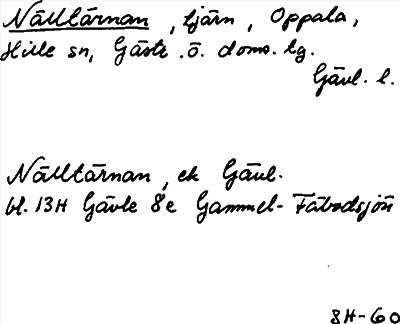 Nälltärnan, tjärn, Oppala,
Hille sn, Gästr. ö. doms. lg.
Gävl. l.
Nälltärnan, ek Gävl.
bl. 13H Gävle 8e Gammel-Fäbodsjön
8H-60